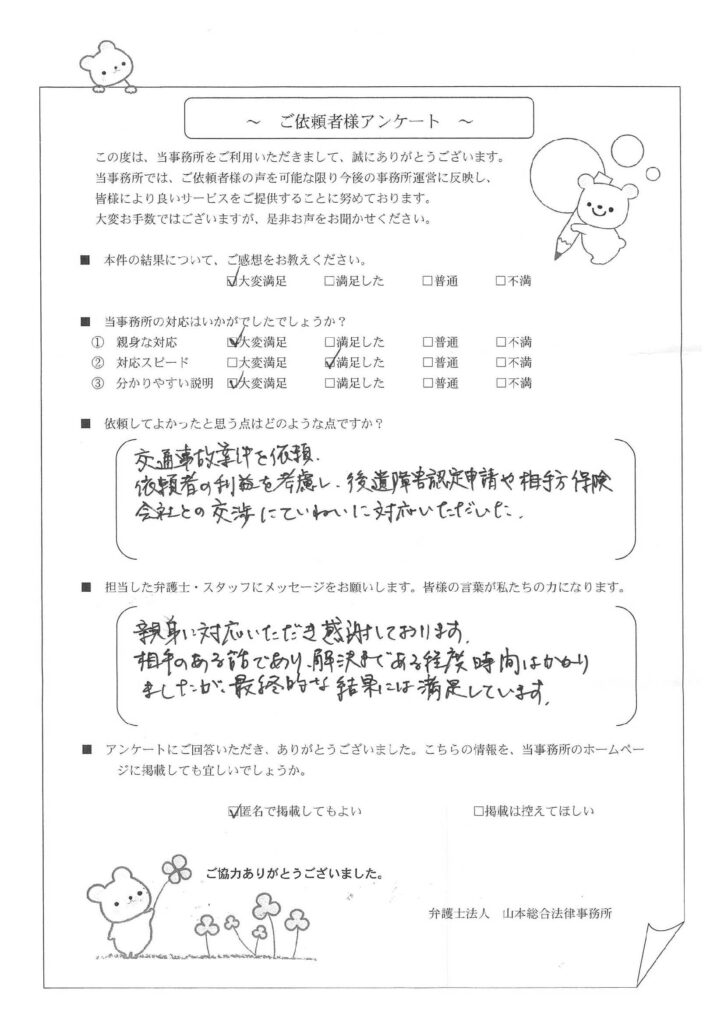 ～ ご依頼者様アンケート ～
この度は、当事務所をご利用いただきまして、誠にありがとうございます。
当事務所では、ご依頼者様の声を可能な限り今後の事務所運営に反映し、
皆様により良いサービスをご提供することに努めております。
大変お手数ではございますが、是非お声をお聞かせください。
■ 本件の結果について、ご感想をお教えください。
☑大変満足 □満足した □普通 □不満
■ 当事務所の対応はいかがでしたでしょうか？
① 親身な対応 ☑大変満足 □満足した □普通 □不満
② 対応スピード □大変満足 ☑満足した □普通 □不満
③ 分かりやすい説明 ☑大変満足 □満足した □普通 □不満
■ 依頼してよかったと思う点はどのような点ですか？
交通事故案件を依頼.
依頼者の利益を考慮し、後遺障害認定申請や相手方保険
会社との交渉にていねいに対応いただいた.
■ 担当した弁護士・スタッフにメッセージをお願いします。皆様の言葉が私たちの力になります。
親身に対応いただき感謝しております.
相手のある話であり、解決まである程度時間はかかり
ましたが、最終的な結果には満足しています.
■ アンケートにご回答いただき、ありがとうございました。こちらの情報を、当事務所のホームペー
ジに掲載しても宜しいでしょうか。
☑匿名で掲載してもよい □掲載は控えてほしい
ご協力ありがとうございました。
弁護士法人 山本総合法律事務所